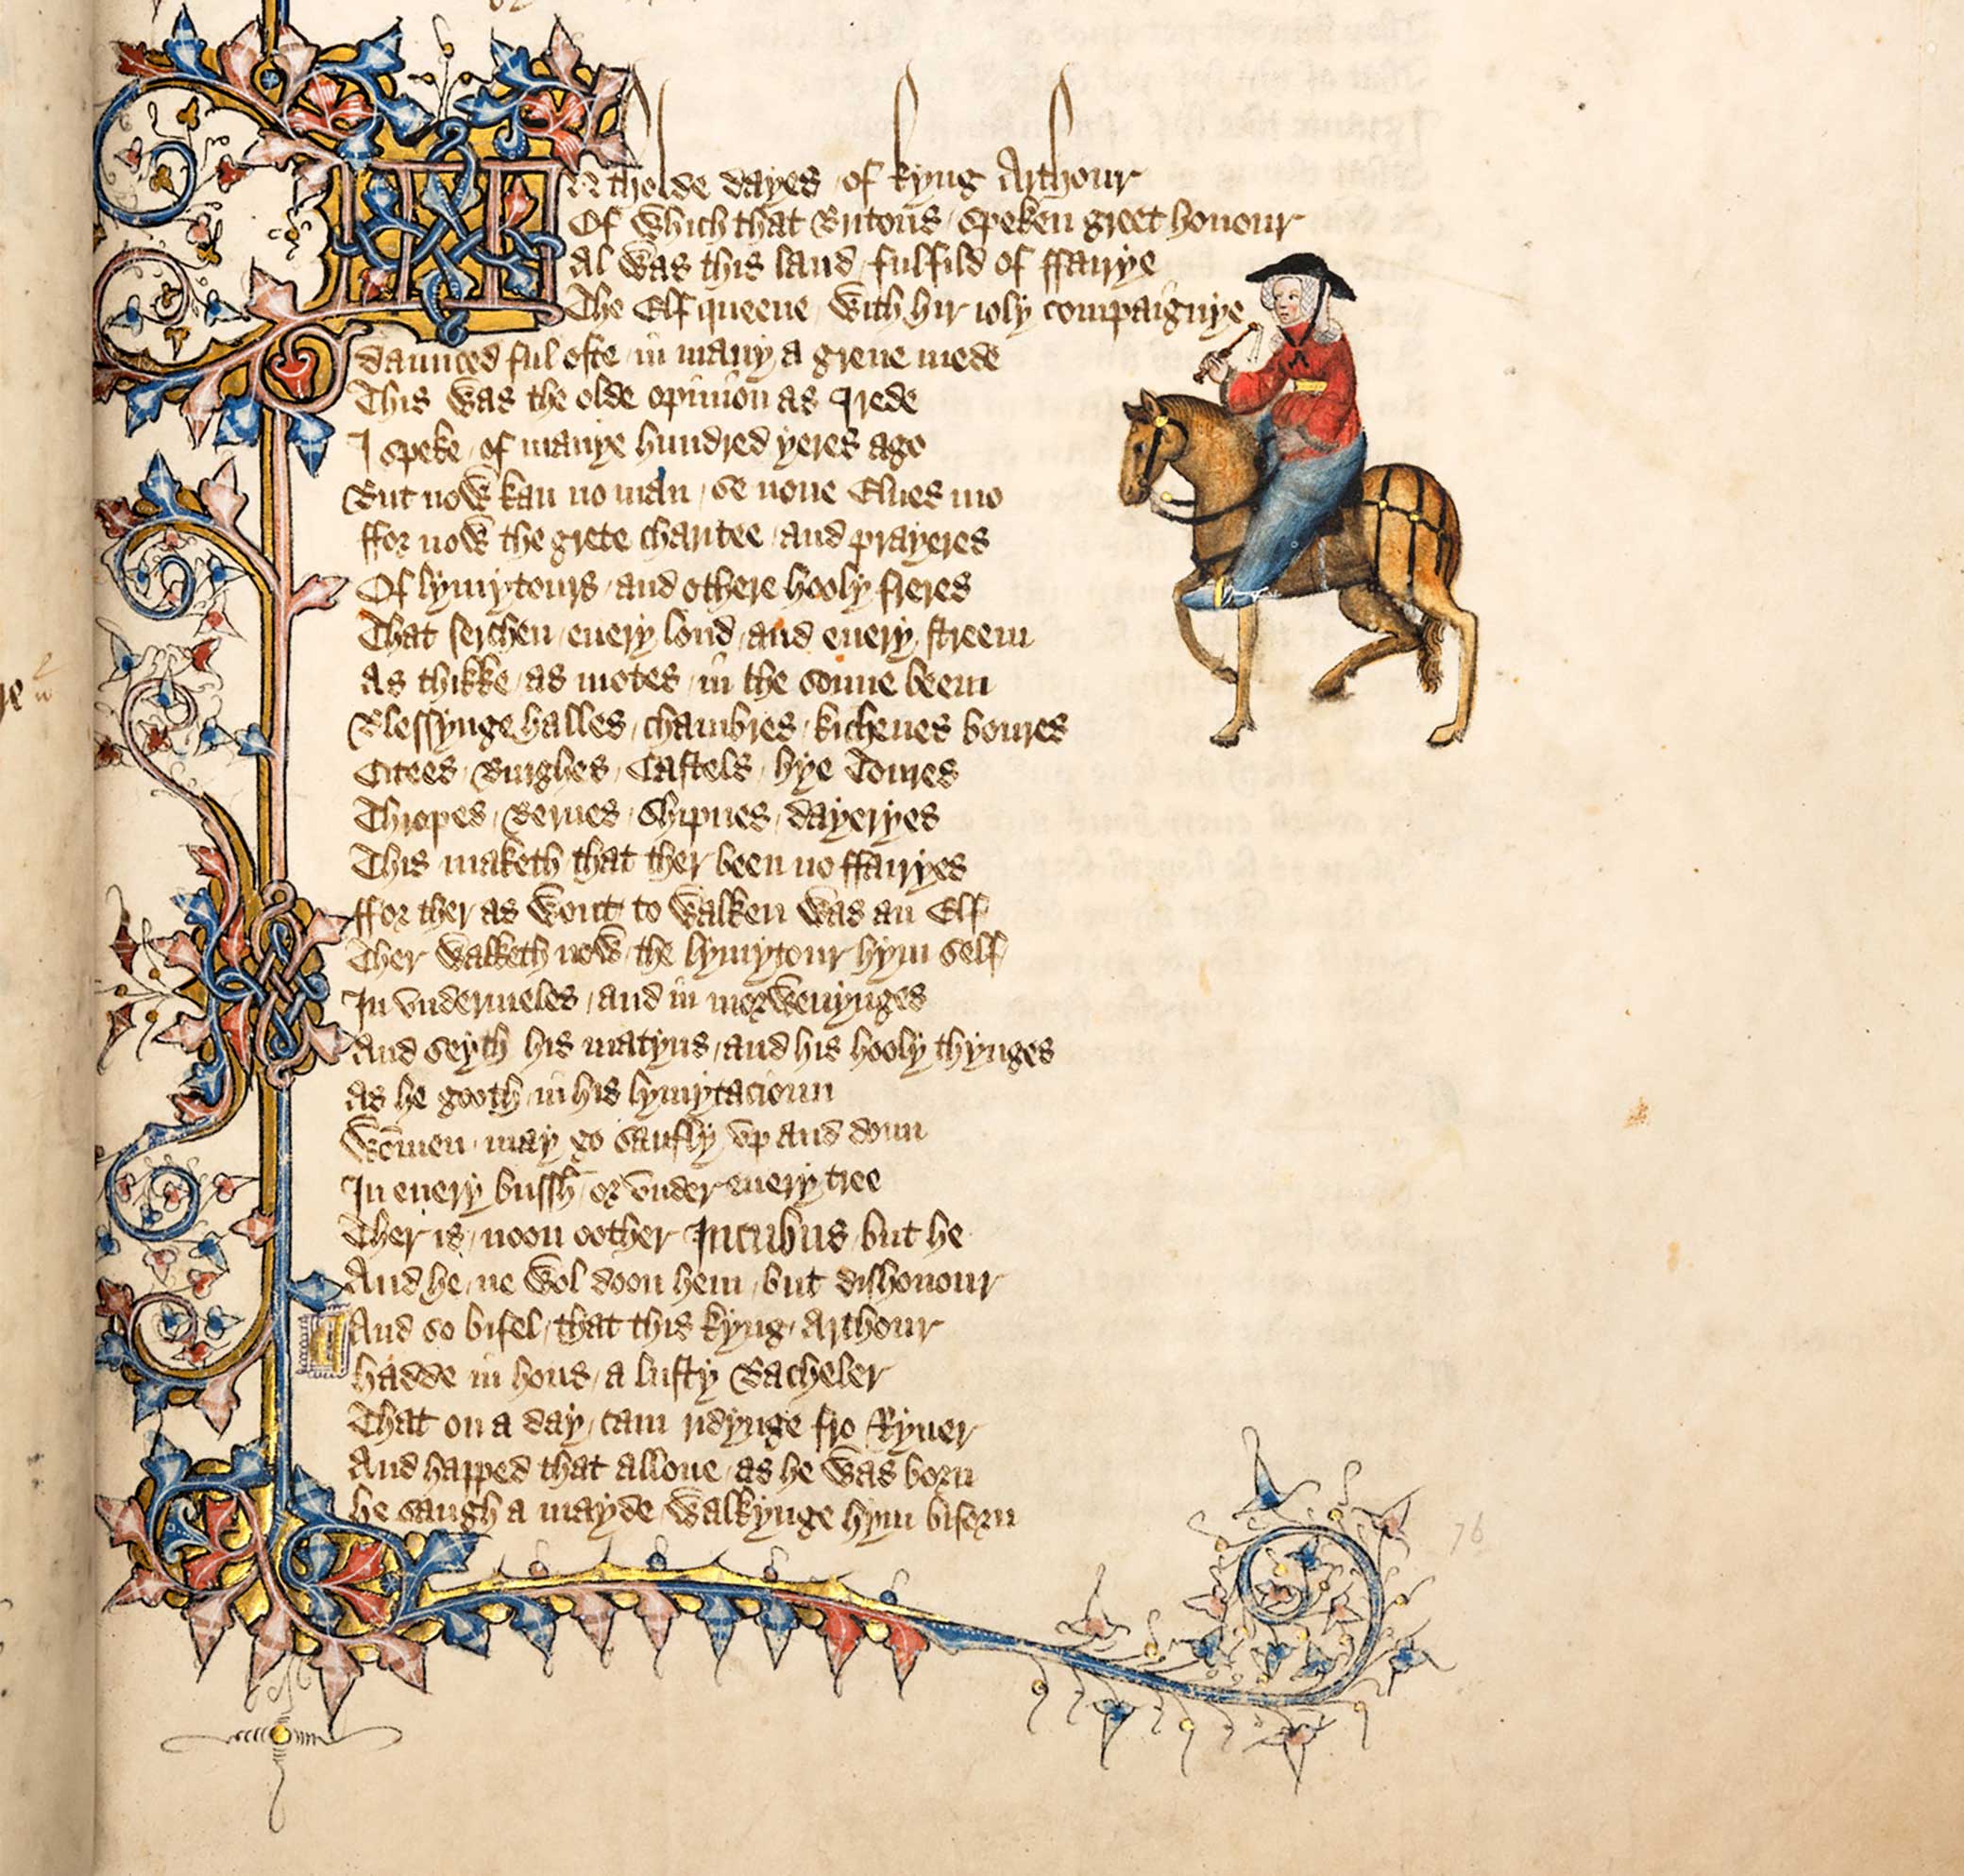 IN tholde dayes of kyng Arthour
Of which that Britons speken greet honour
Al was this land fulfild of ffairye
The Elf queene with hir ioly compaignye
Daunced ful ofte in many a grene mede
This was the olde opinion as I rede
I speke of manye hundred yeres ago
But now kan no man se none Elues mo
ffor now the grete charitee and prayeres
Of lymytours and othere hooly freres
That serchen euery lond and euery streem
As thikke as motes in the sonne beem
Blessynge halles chambres kichenes boures
Citees Burghes Castels hye Toures
Thropes Bernes Shipnes dayeryes
This maketh that ther been no ffairyes
ffor ther as wont to walken was an Elf
Ther walketh now the lymytour hym self
In vndermeles and in morwenynges
And seyth his matyns and his hooly thynges
As he gooth in his lymytacioun
Wommen may go saufly vp and doun
In euery bussh or vnder euery tree
Ther is noon oother Incubus but he
And he ne wol doon hem but dishonour
And so bifel that this kyng Arthour
Hadde in hous a lusty Bacheler
That on a day cam ridynge fro Ryuer
And happed that allone as he was born
He saugh a mayde walkynge hym biforn
76